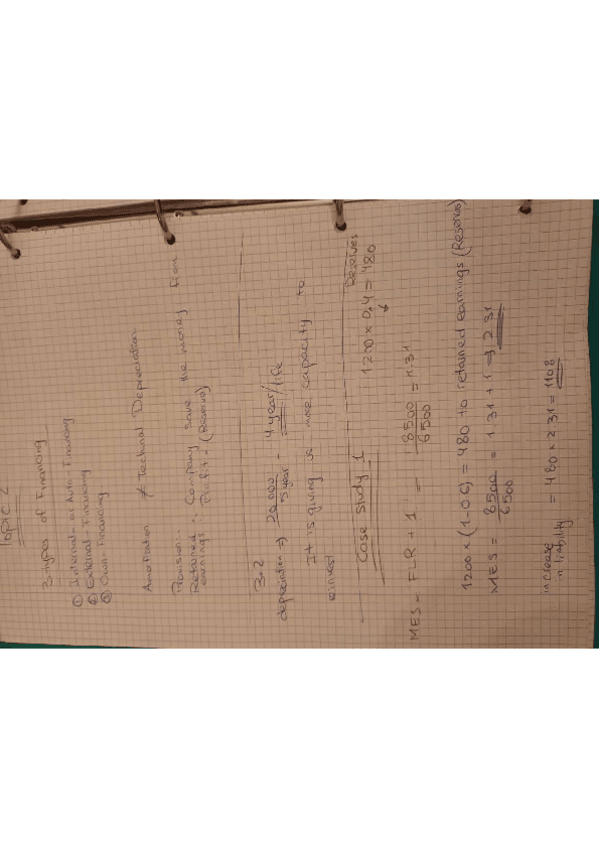 Topic 2
3-types of Financing
① Internal - or Auto-Financing
② External - Financing
③ Own - Financing
≠ Technical Depreciation
Provision:
Retained : Company save the money from
earnings : Profit = (Reserve)
3.2
depreciation => 20 000 / 5 year = 4 year/life
It is giving us more capacity to
reinvest
Case study 1
1200 x 0.4 = 480
Reserves
MES = FLR + 1 = 8500 / 6500 = 1.31
1200 x (1-0.6) = 480 to retained earnings (Reserves)
MES = 8500 / 6500 = 1.31 + 1 => 2.31
increase
in liability = 480 x 2.31 = 1108